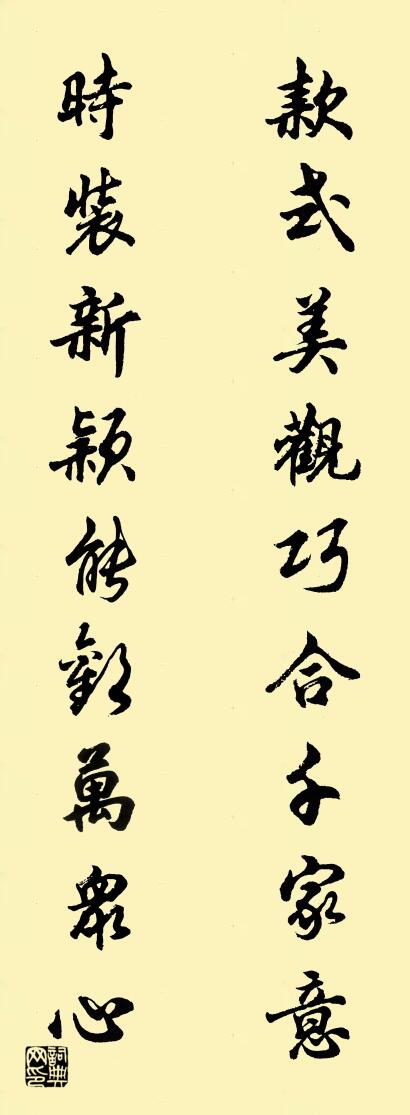 款式美觀巧合千家意
時裝新穎能歡萬眾心
詞典
网印